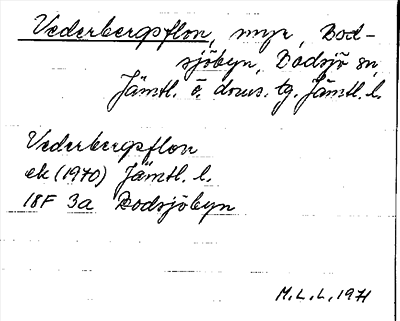 Vederbergsflon, myr, Bod-
sjöbyn, Bodsjö sn,
Jämtl. ö. doms. tg. Jämtl. l.
Vederbergsflon
ek (1970) Jämtl. l.
18F 3a Bodsjöbyn
M.L.L. 1971